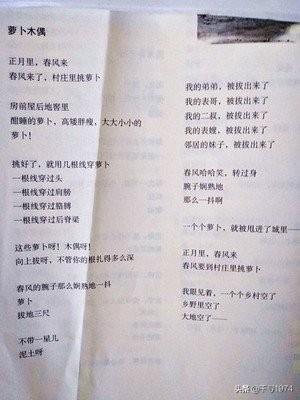 萝卜木偶
正月里，春风来
春风来了，村庄里挑萝卜
房前屋后地窖里
酣睡的萝卜，高矮胖瘦，大大小小的
萝卜！
挑好了，就用几根线穿萝卜
一根线穿过头
一根线穿过肩膀
一根线穿过胳膊
一根线穿过后脊梁
这些萝卜呀！木偶呀！
向上拔呀，不管你的根扎得多么深
春风的腕子那么娴熟地一抖
萝卜
拔地三尺
不带一星儿
泥土呀
我的弟弟，被拔出来了
我的表哥，被拔出来了
我的二叔，被拔出来了
我的表嫂，被拔出来了
邻居的妹子，被拔出来了
春风哈哈笑，转过身
腕子娴熟地
那么一抖啊
一个个萝卜，就被甩进了城里——
正月里，春风来
春风要到村庄里挑萝卜
我眼见着，一个个乡村空了
乡野里空了
大地空了——
头条 @千寻1974